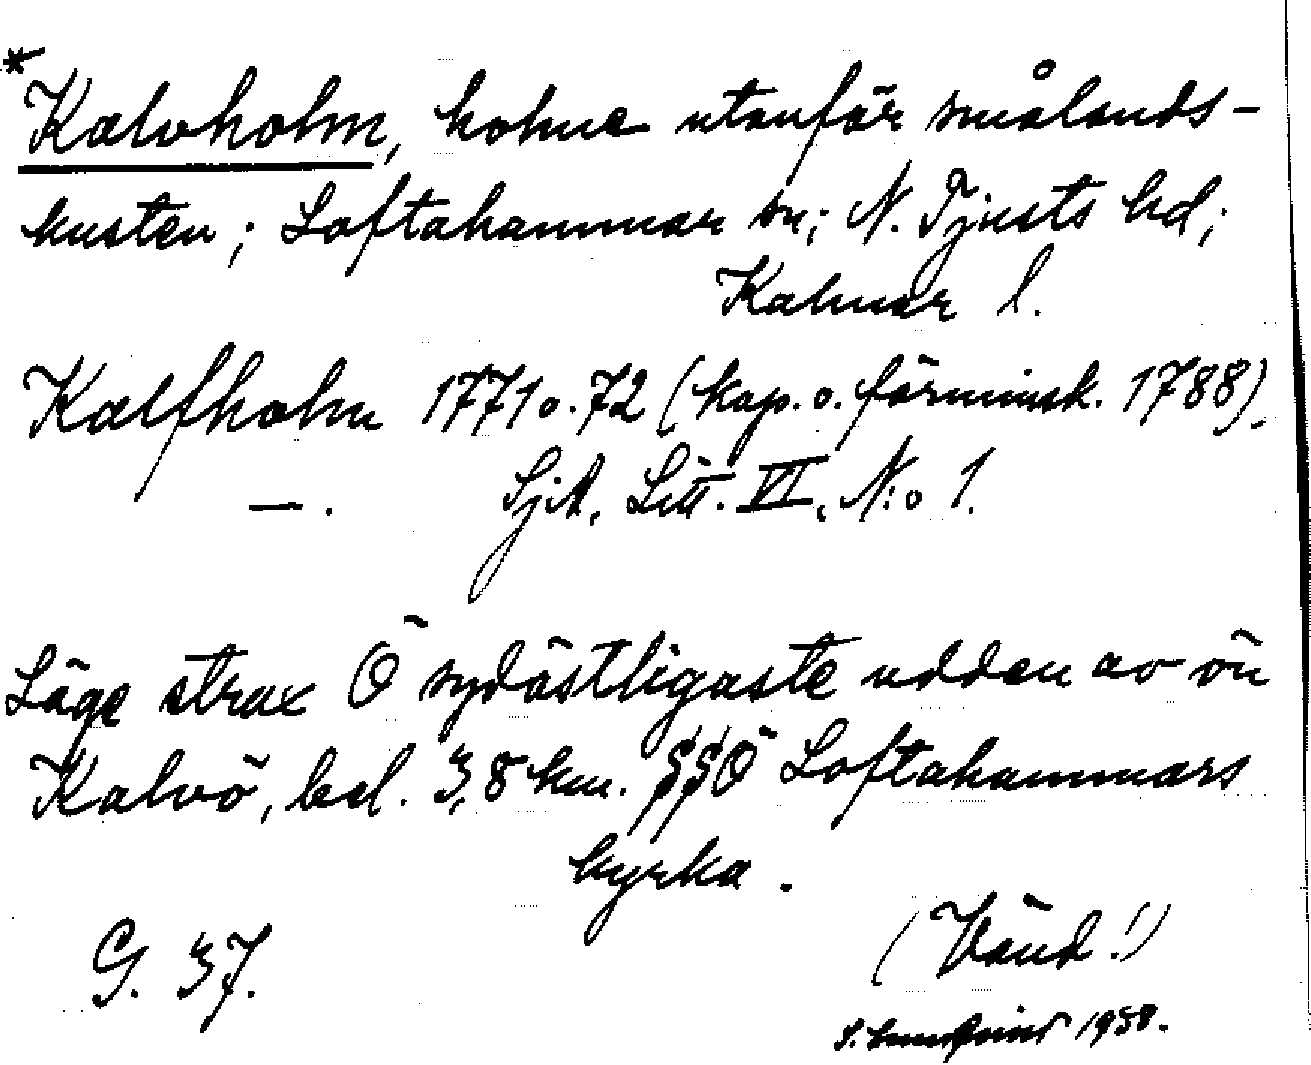 *Kalvholm, holme utanför smålands-
kusten; Loftahammar sn; N. Tjusts hd;
Kalmar l.
Kalfholm 1771 o. 72 (kop. o. förminsk. 1788).
— . SjA. Litt. VI, N:o 1.
Läge strax Ö sydöstligaste udden av ön
Kalvö, bel. 3,8 km. SSÖ Loftahammars
kyrka.
G. 37.
(Vänd!)
S. 1958.